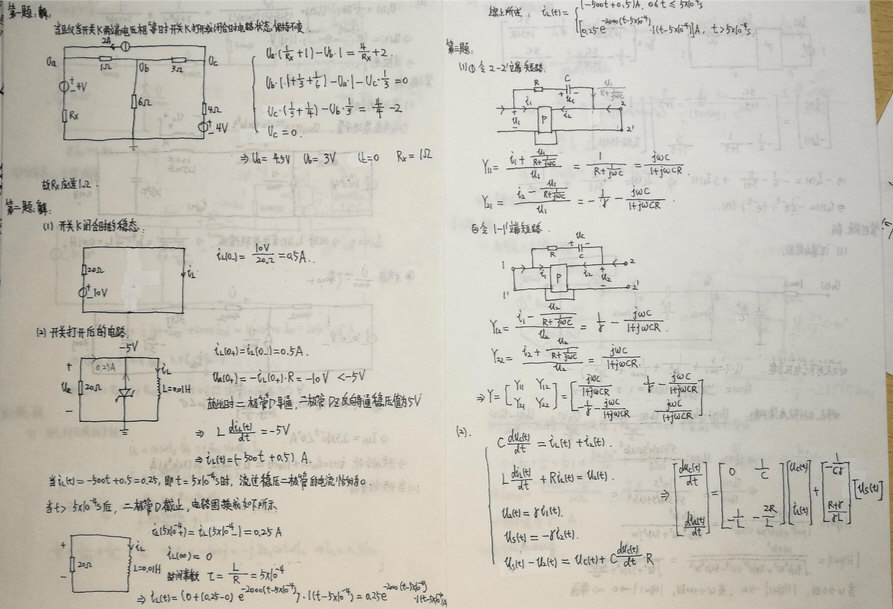 第一题.解:
当且仅当开关K两端电压相等时开关K打开或闭合时电路状态保持不变
2A
Ua
Ub
Uc
1Ω
3Ω
4V
6Ω
4Ω
Rx
4V
Ua·(1/Rx+1)-Ub·1=4/Rx+2
Ub·(1+1/3+1/6)-Ua·1-Uc·1/3=0
Uc·(1/3+1/4)-Ub·1/3=4/4-2
Uc=0
⇒ Ua=4.5V Ub=3V Uc=0 Rx=1Ω
故Rx应选1Ω.
第二题.解:
(1) 开关K闭合时的稳态:
20Ω
10V
iL
iL(0-)=10V/20Ω=0.5A.
(2) 开关打开后的电路.
-5V
0.25A
iL
UR
20Ω
L=0.01H
iL(0+)=iL(0-)=0.5A.
UR(0+)=-iL(0+)·R=-10V<-5V
故此时二极管D导通,二极管DZ反向导通稳压值为5V
⇒ L diL(t)/dt=-5V
⇒ iL(t)=(-500t+0.5)A.
当iL(t)=-500t+0.5=0.25,即t=5×10⁻⁴s时,流过稳压二极管的电流恰好为0.
当t>5×10⁻⁴s后,二极管D截止,电路图换成如下所示
20Ω
iL
L=0.01H
iL(5×10⁻⁴+)=iL(5×10⁻⁴-)=0.25A
iL(∞)=0
时间常数 τ=L/R=5×10⁻⁴s
⇒ iL(t)=(0+(0.25-0)e^{-2000(t-5×10⁻⁴)})·1(t-5×10⁻⁴)=0.25e^{-2000(t-5×10⁻⁴)}·1(t-5×10⁻⁴)A
综上所述: iL(t)={(-500t+0.5)A, 0≤t≤5×10⁻⁴s
[0.25e^{-2000(t-5×10⁻⁴)}·1(t-5×10⁻⁴)]A, t>5×10⁻⁴s
第三题.
(1) ① 令2-2'端短路.
R
C
uc
i1
i2
u1
P
2
2'
Y11=(i1+u1/(R+1/jωC))/u1=1/(R+1/jωC)=jωC/(1+jωCR)
Y21=(i2-u1/(R+1/jωC))/u1=-1/γ-jωC/(1+jωCR)
② 令1-1'端短路.
uc
R
C
1
i1
P
i2
u2
2
1'
2'
Y12=(i1-u2/(R+1/jωC))/u2=1/γ-jωC/(1+jωCR)
Y22=(i2+u2/(R+1/jωC))/u2=jωC/(1+jωCR)
⇒ Y=[Y11 Y12; Y21 Y22]=[jωC/(1+jωCR) 1/γ-jωC/(1+jωCR); -1/γ-jωC/(1+jωCR) jωC/(1+jωCR)].
(2).
C duc(t)/dt=iL(t)+i2(t).
L diL(t)/dt+RiL(t)=u2(t).
u2(t)=γi1(t).
us(t)=-γi2(t).
us(t)-u2(t)=uc(t)+C duc(t)/dt·R
⇒ [duc(t)/dt; diL(t)/dt]=[0 1/C; -1/L -2R/L][uc(t); iL(t)]+[-1/Cγ; (R+γ)/γL][us(t)]